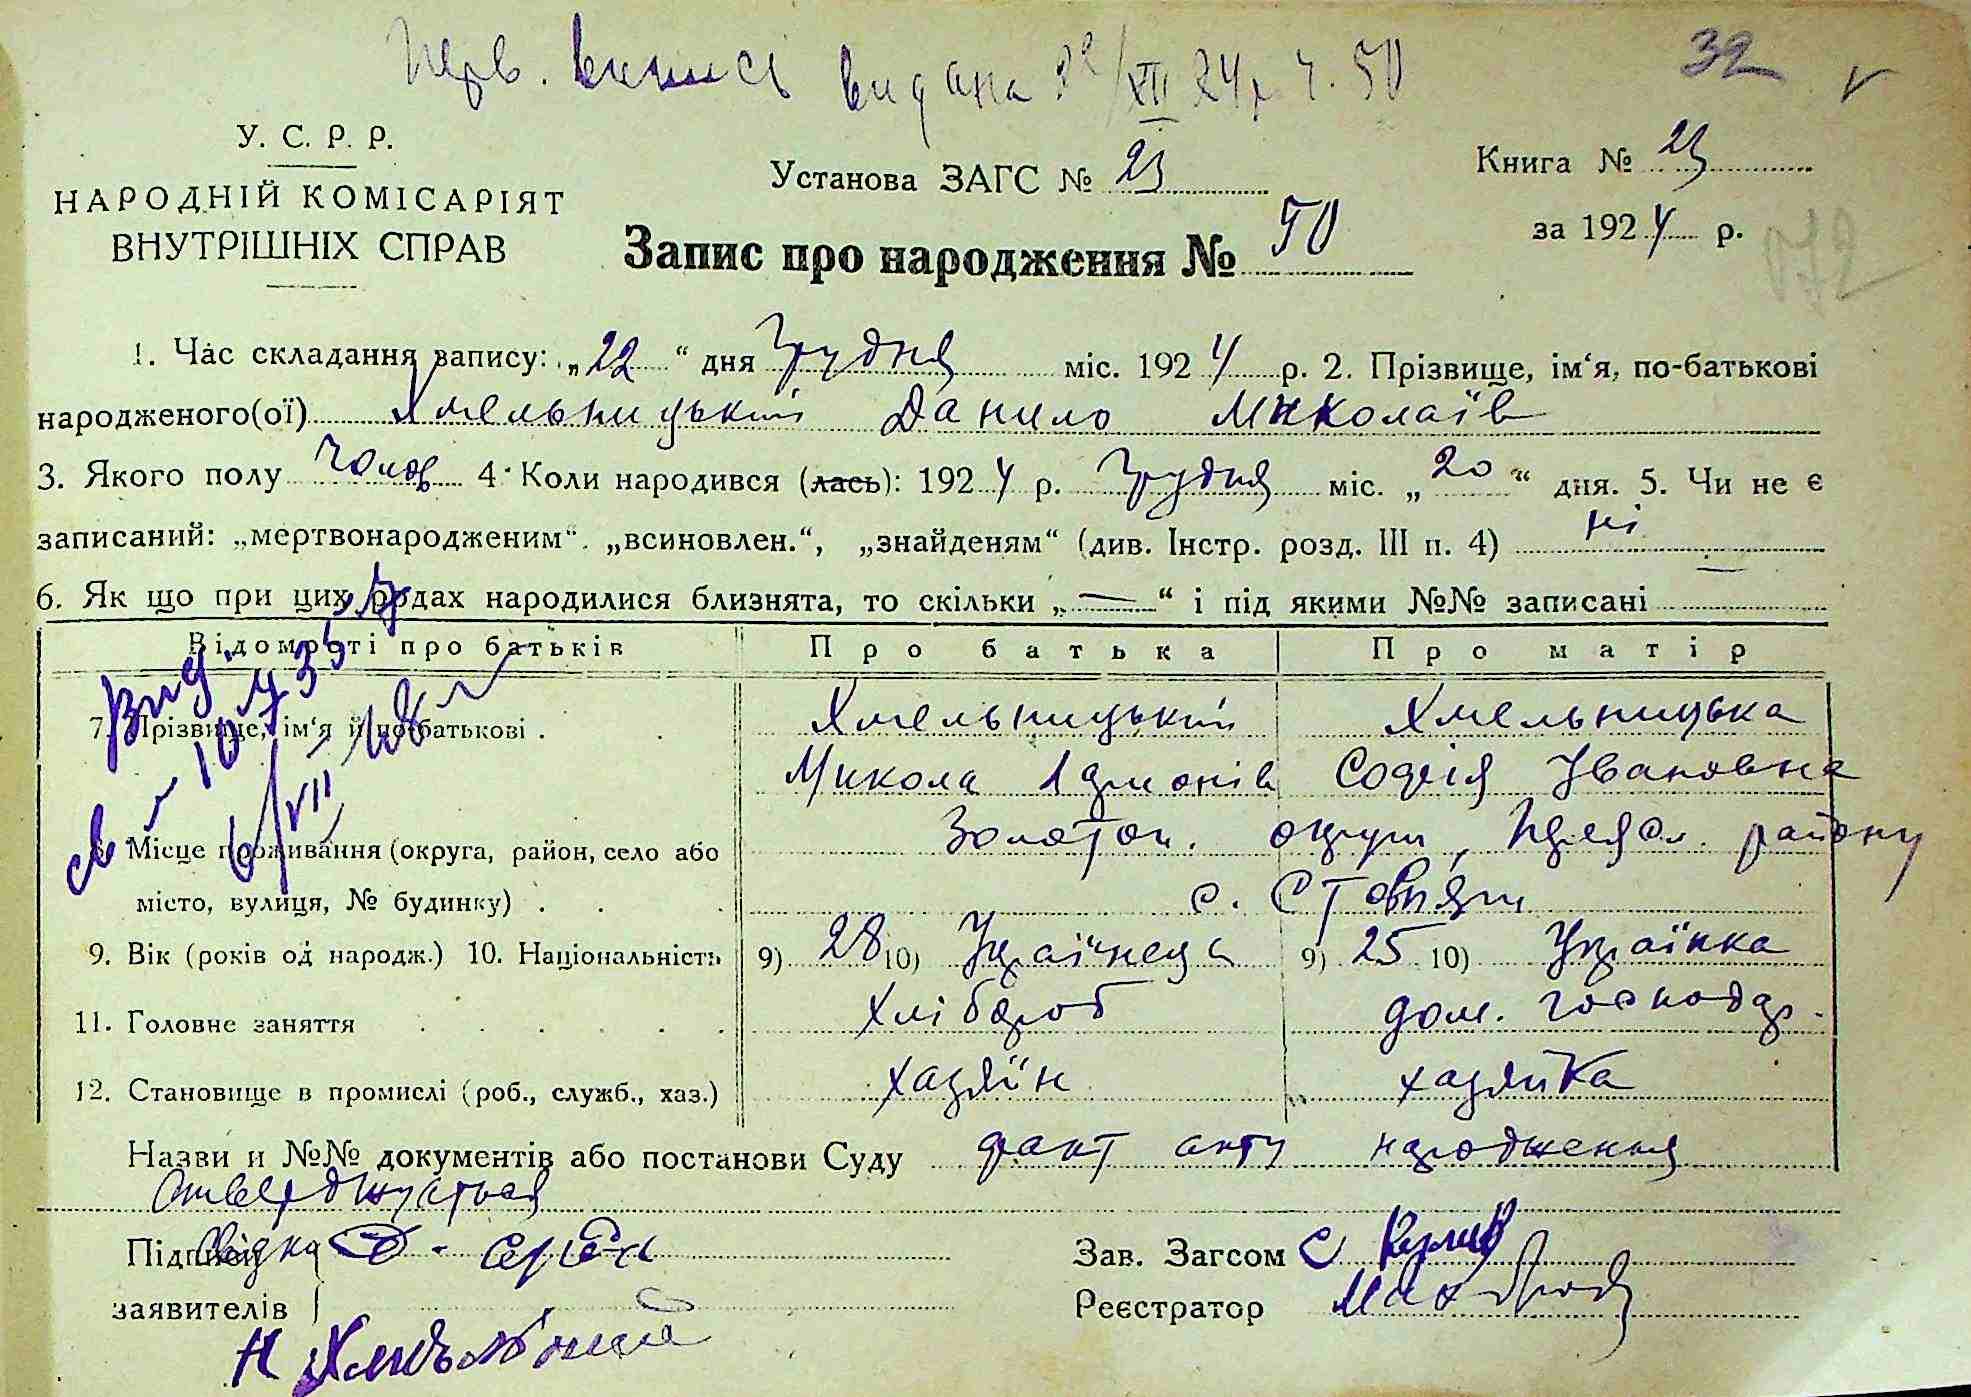 Перв. випись видана 22/XII 24 р ч. 50
32
У. С. Р. Р.
НАРОДНІЙ КОМІСАРІЯТ
ВНУТРІШНІХ СПРАВ
Установа ЗАГС № 23
Книга № 23
за 1924 р.
Запис про народження № 50
1. Час складання запису: „22“ дня Грудня міс. 1924 р. 2. Прізвище, ім‘я, по-батькові
народженого(ої) Хмельницький Данило Миколаїв
3. Якого полу чолов 4. Коли народився (лась): 1924 р. Грудня міс. „20“ дня. 5. Чи не є
записаний: „мертвонародженим“. „всиновлен.“, „знайденям“ (див. Інстр. розд. III п. 4) ні
6. Як що при цих родах народилися близнята, то скільки „—“ і під якими №№ записані
Відомості про батьків Про батька Про матір
7. Прізвище, ім‘я й по-батькові . . Хмельницький Хмельницька
Микола Софія Івановна
8. Місце проживання (округа, район, село або Золотон. округи, Переясл. району
місто, вулиця, № будинку) . . . с. Стовпяги
9. Вік (років од народж.) 10. Національність 9) 28 10) Українець 9) 25 10) Українка
11. Головне заняття . . . . . . хлібороб дом. господар.
12. Становище в промислі (роб., служб., хаз.) хазяїн хазяйка
Назви и №№ документів або постанови Суду факт акту народження
стверджується
Підписи свідка
заявителів
Зав. Загсом
Реєстратор
Вид.